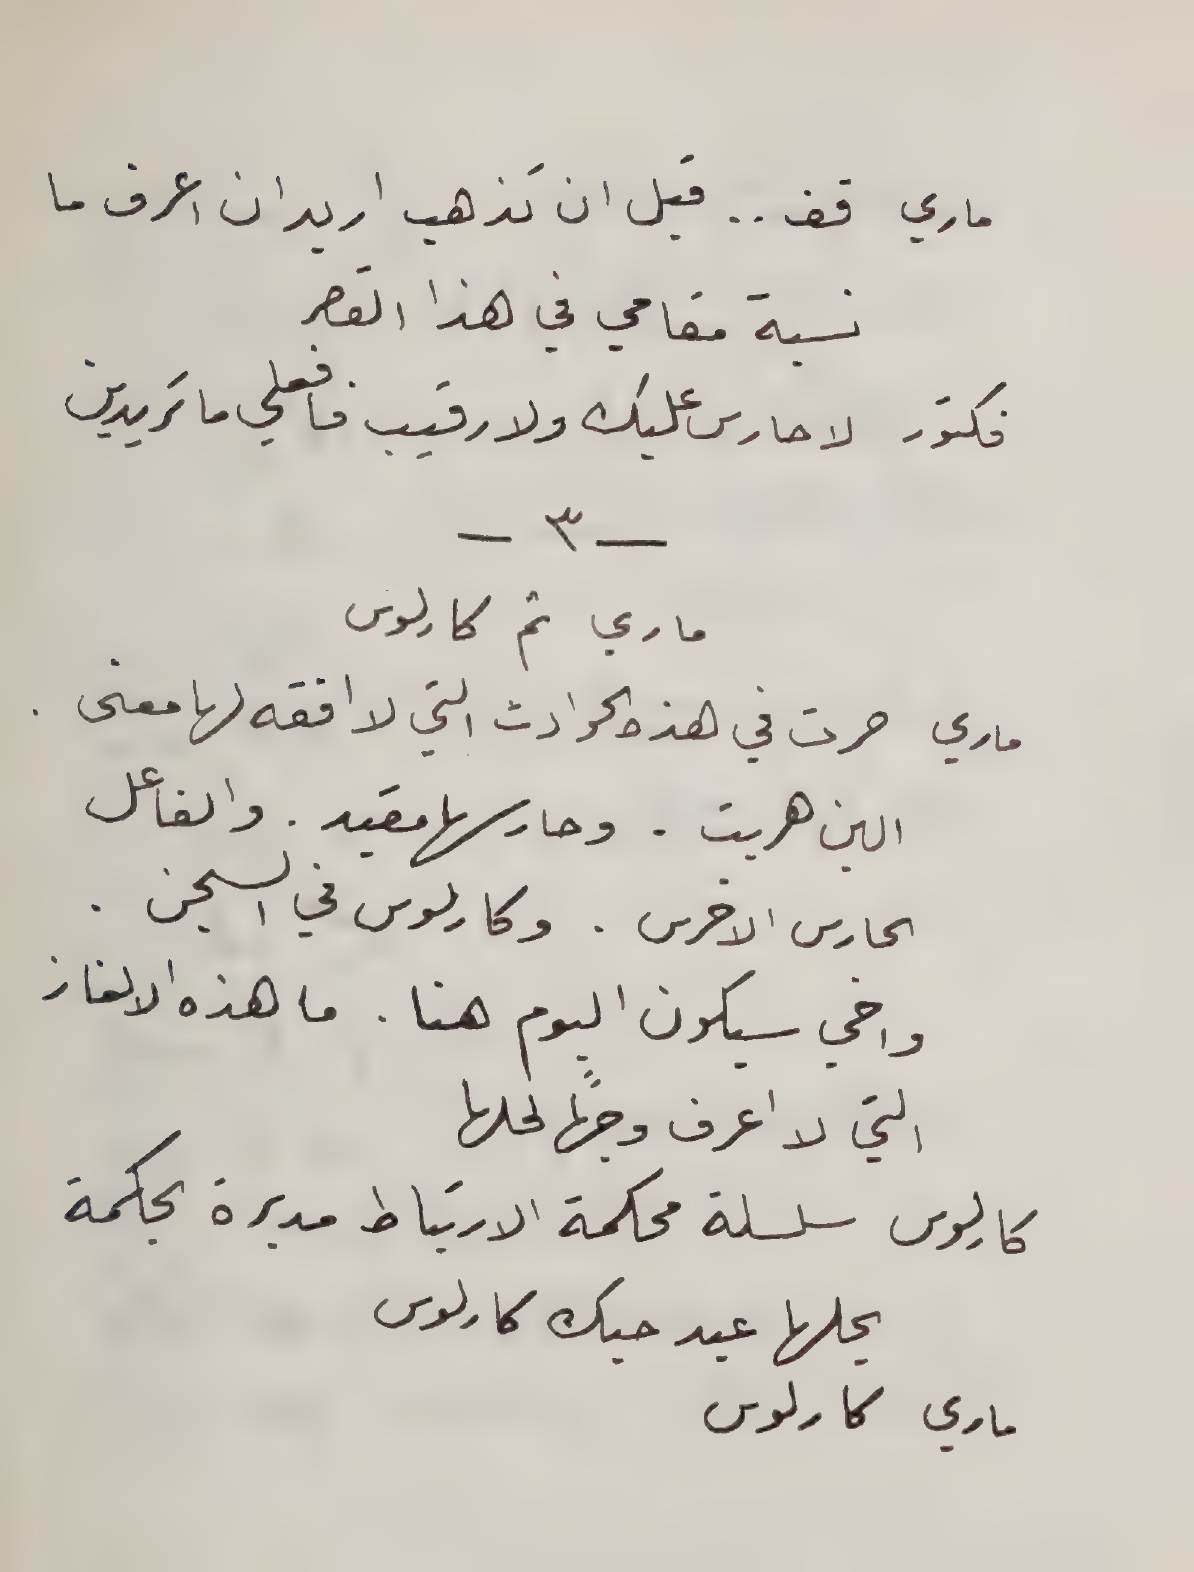 ماري قف .. قبل ان تذهب اريد ان اعرف ما
نسبة مقامي في هذا القصر
فكتور لا حارس عليك ولا رقيب فافعلي ما تريدين
— ٣ —
ماري ثم كارلوس
ماري حرت في هذه الحوادث التي لا افقه لها معنى .
الين هربت . وحارسها مقيد . والفاعل
الحارس الاخرس . وكارلوس في السجن .
واخي سيكون اليوم هنا . ما هذه الالغاز
التي لا اعرف وجهًا لحلها
كارلوس سلسلة محكمة الارتباط مدبرة بحكمة
يحلها عبد حبك كارلوس
ماري كارلوس